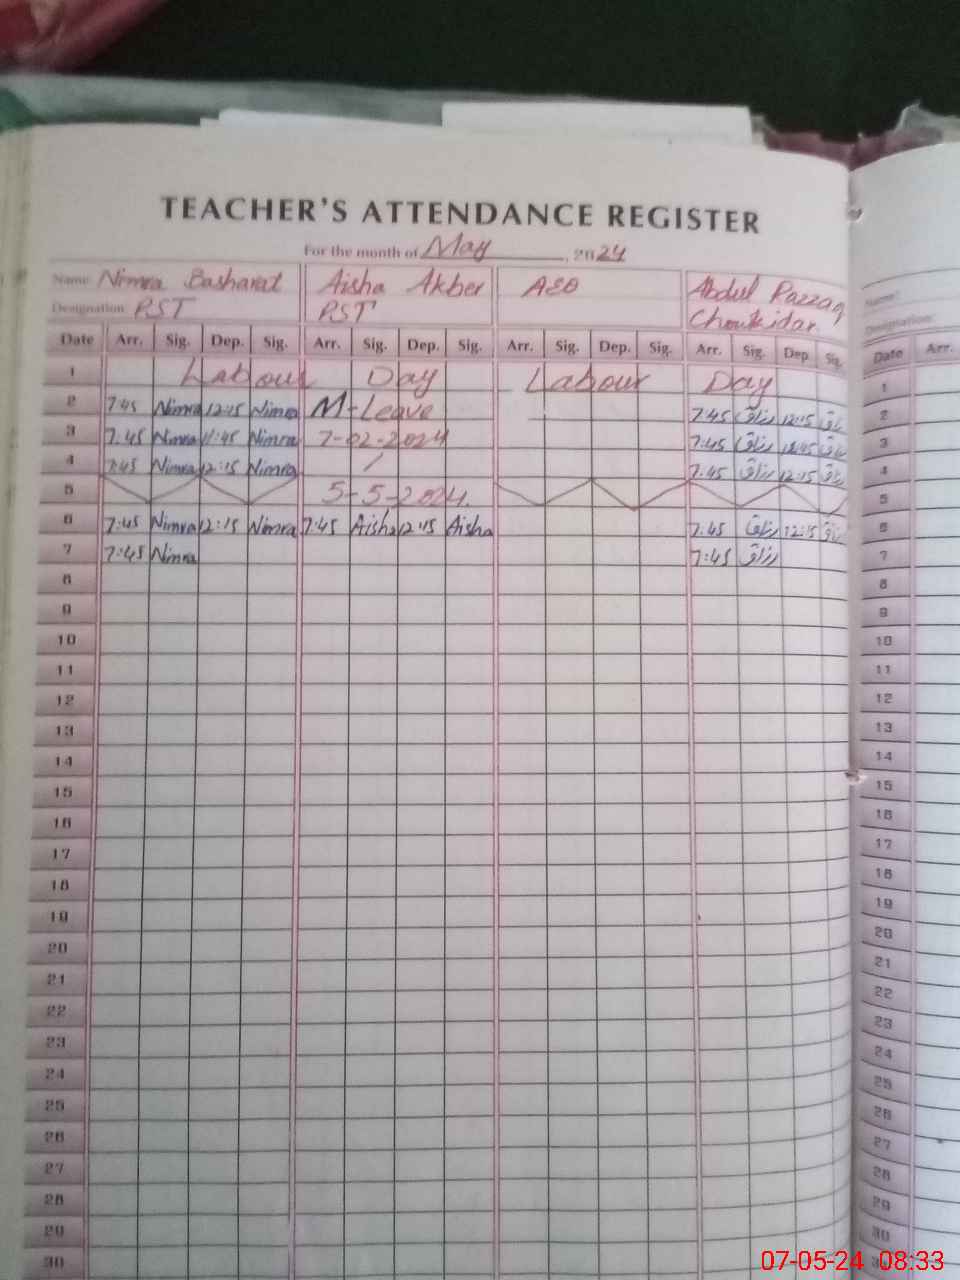 TEACHER'S ATTENDANCE REGISTER
For the month of May, 2024
Name Nimra Basharat Aisha Akber AEO Abdul Razzaq
Designation PST PST Chowkidar
Date Arr. Sig. Dep. Sig. Arr. Sig. Dep. Sig. Arr. Sig. Dep. Sig. Arr. Sig. Dep. Sig. Date Arr.
1 Labour Day Labour Day 1
2 7:45 Nimra 12:15 Nimra M-Leave 7:45 رزاق 12:15 2
3 7:45 Nimra 11:45 Nimra 7-02-2024 7:45 رزاق 3
4 7:45 Nimra 12:15 Nimra / 7:45 رزاق 12:15 4
5 5-5-2024. 5
6 7:45 Nimra 12:15 Nimra 7:45 Aisha 12:15 Aisha 7:45 رزاق 12:15 6
7 7:45 Nimra 7:45 رزاق 7
8 8
9 9
10 10
11 11
12 12
13 13
14 14
15 15
16 16
17 17
18 18
19 19
20 20
21 21
22 22
23 23
24 24
25 25
26 26
27 27
28 28
29 29
30 30
07-05-24 08:33